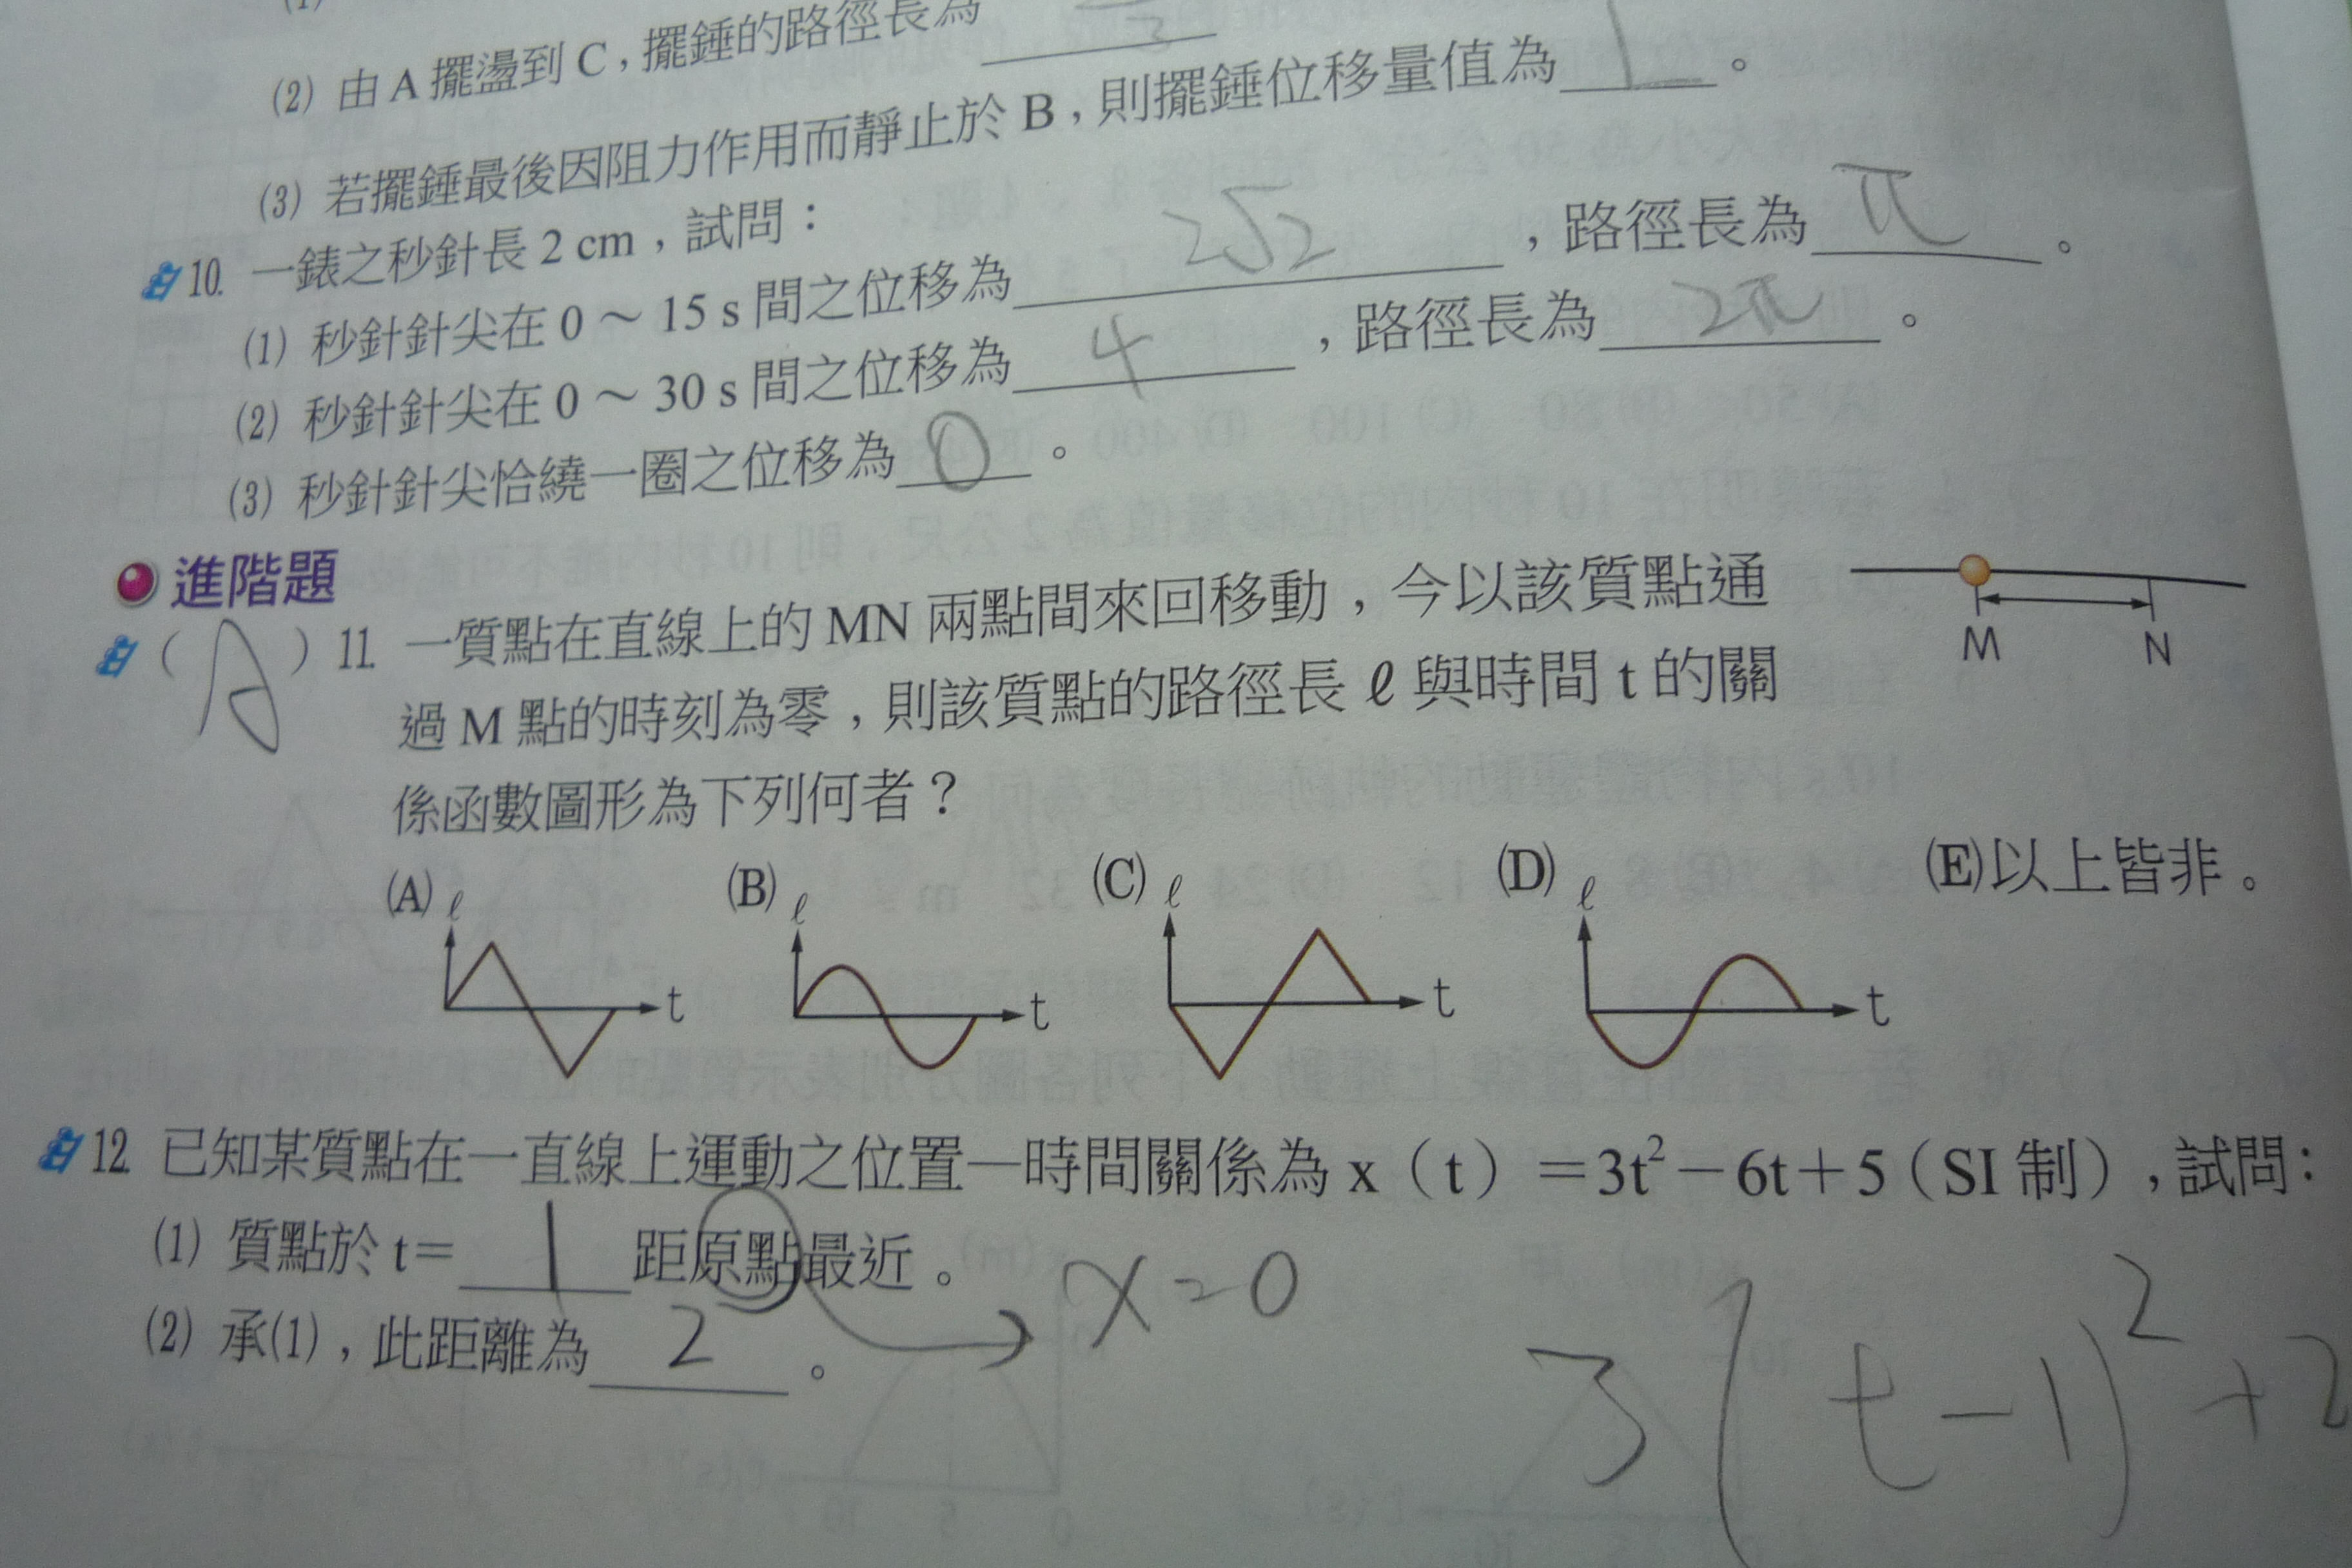 (2) 由 A 擺盪到 C，擺錘的路徑長為
(3) 若擺錘最後因阻力作用而靜止於 B，則擺錘位移量值為 1 。
10. 一錶之秒針長 2 cm，試問：
(1) 秒針針尖在 0 ～ 15 s 間之位移為 2√2 ，路徑長為 π 。
(2) 秒針針尖在 0 ～ 30 s 間之位移為 4 ，路徑長為 2π 。
(3) 秒針針尖恰繞一圈之位移為 0 。
進階題
( A ) 11. 一質點在直線上的 MN 兩點間來回移動，今以該質點通
過 M 點的時刻為零，則該質點的路徑長 ℓ 與時間 t 的關
係函數圖形為下列何者？
M N
(A) (B) (C) (D) (E)以上皆非。
ℓ ℓ ℓ ℓ
t t t t
12. 已知某質點在一直線上運動之位置—時間關係為 x（t）＝3t²－6t＋5（SI 制），試問：
(1) 質點於 t＝ 1 距原點最近。 x=0
(2) 承(1)，此距離為 2 。
3(t-1)²+2